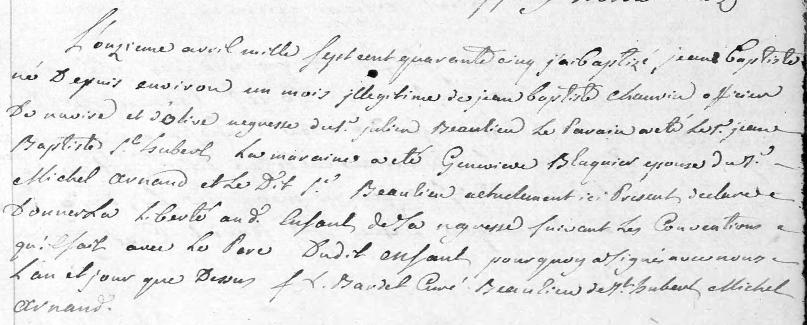 L'onzieme avril mille Sept cent quarante cinq j'ai baptizé, jean baptiste
né Depuis environ un mois jllegitime de jean baptiste chauvin officier
De navire et d'olive negresse du Sr. julien Beaulieu Le Parain a eté Le Sr. jean
Baptiste St. hubert La maraine a eté Genevieve Blaquier epouse du Sr.
Michel Arnaud et Le Dit Sr. Beaulieu actuelement ici Present declare
Donner La Liberté aud. Enfant de Sa negresse Suivant Les Conventions
qu'il fait avec Le Pere Dudit enfant pourquoy a signé avec nous
L'an et jour que Dessus f L. Curé Beaulieu de St. hubert Michel
Arnaud.